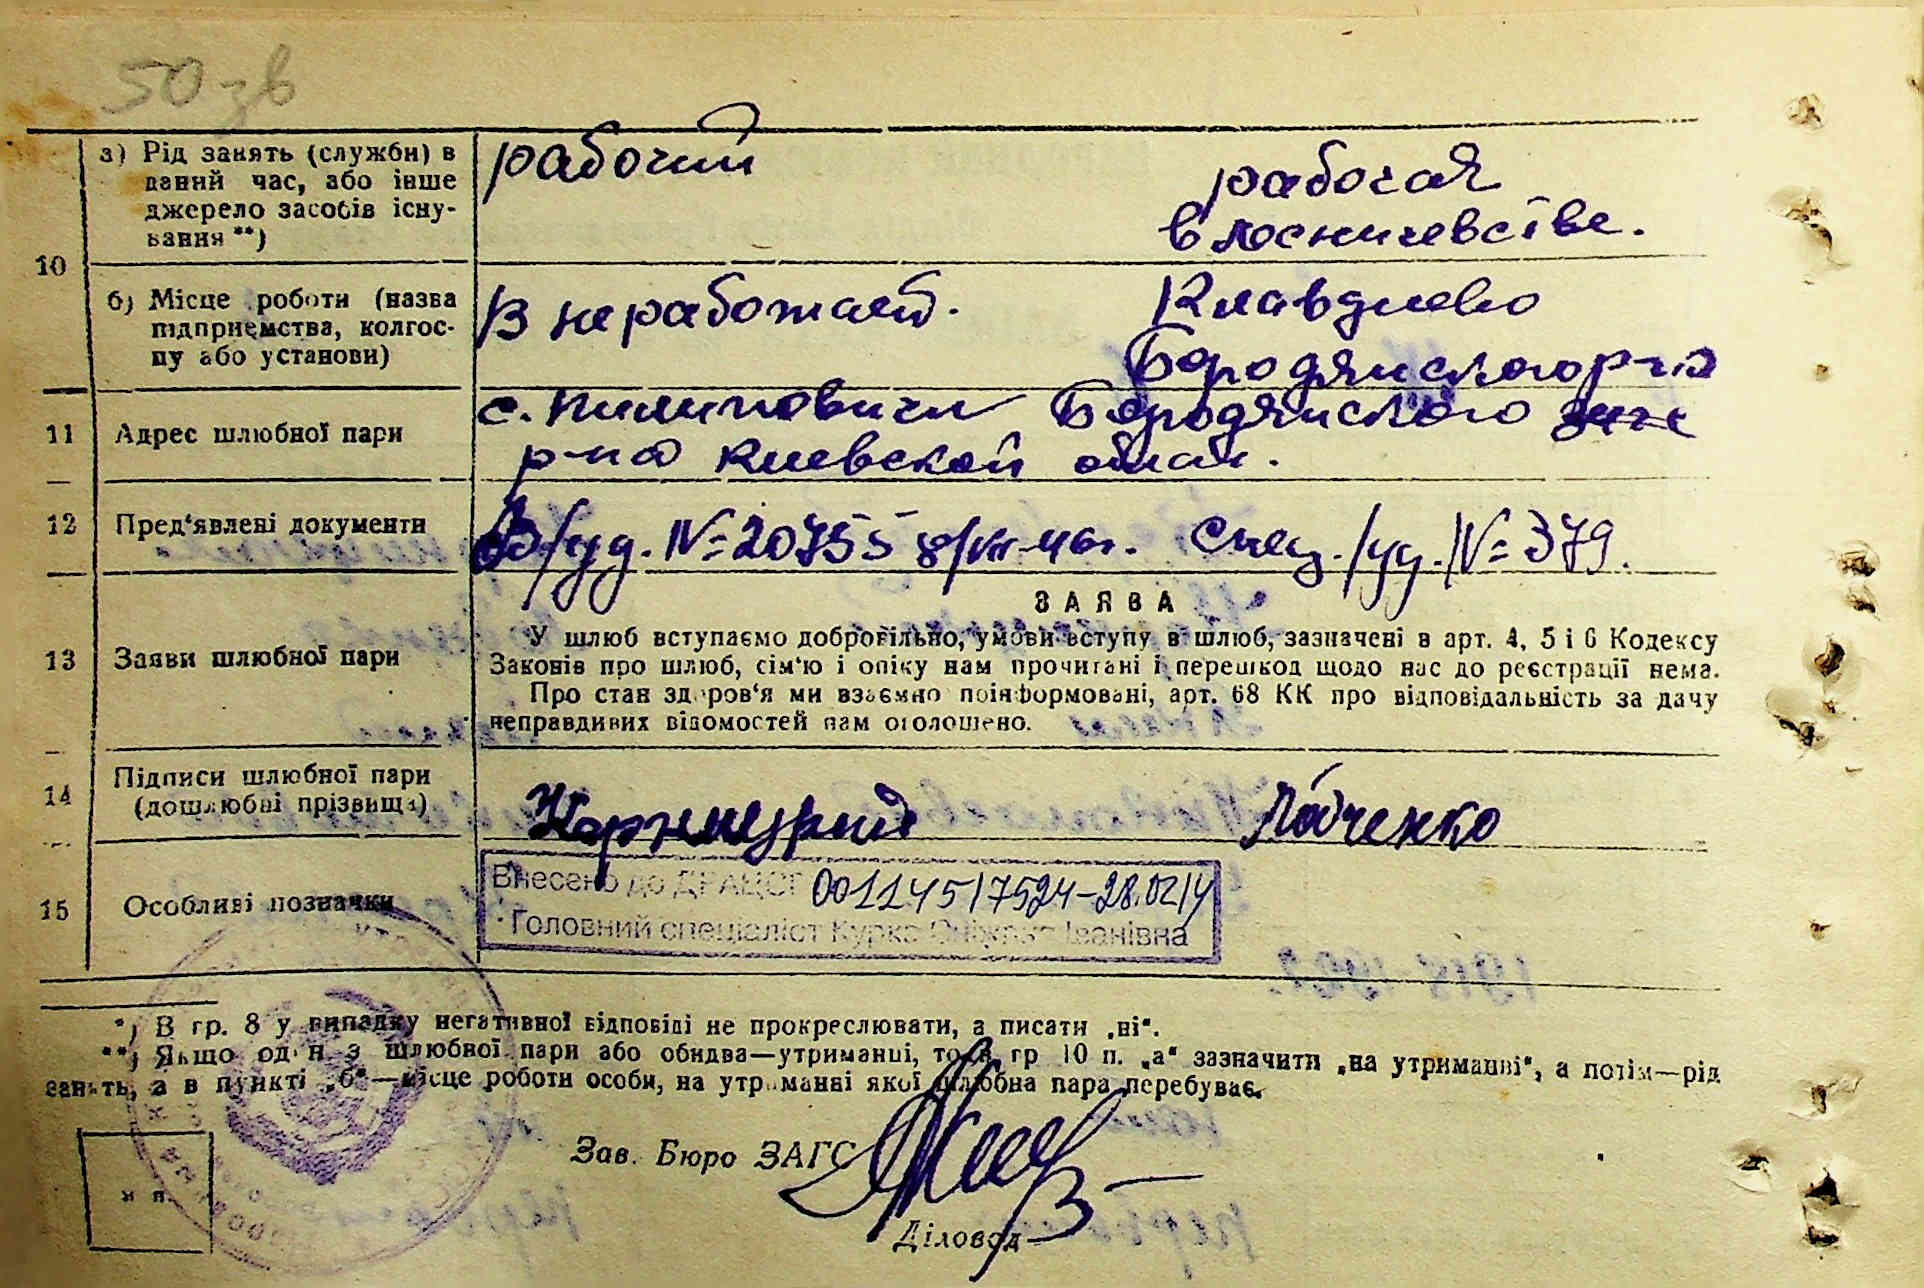 50 зв
10
а) Рід занять (служби) в
даний час, або інше
джерело засобів існу-
вання **)
рабочий
рабочая
в лесничевстве.
б) Місце роботи (назва
підприємства, колгос-
пу або установи)
В не работает.
Клавдиево
Бородянского р-на
11
Адрес шлюбної пари
с. Пилиповичи Бородянского
р-на Киевской облас.
12
Пред'явлені документи
В/уд. № 20755 Спец./уд. № 379.
13
Заяви шлюбної пари
ЗАЯВА
У шлюб вступаємо добровільно, умови вступу в шлюб, зазначені в арт. 4, 5 і 6 Кодексу
Законів про шлюб, сім'ю і опіку нам прочитані і перешкод щодо нас до реєстрації нема.
Про стан здоров'я ми взаємно поінформовані, арт. 68 КК про відповідальність за дачу
неправдивих відомостей нам оголошено.
14
Підписи шлюбної пари
(дошлюбні прізвища)
15
Особливі позначки
Внесено до ДРАЦСГ 00114517524-28.02.14
Головний спеціаліст Курка Сніжана Іванівна
*) В гр. 8 у випадку негативної відповіді не прокреслювати, а писати „ні“.
**) Якщо один з шлюбної пари або обидва—утриманці, то в гр 10 п. „а“ зазначити „на утриманні“, а потім—рід
занять, а в пункті „б“—місце роботи особи, на утриманні якої шлюбна пара перебуває.
Зав. Бюро ЗАГС
Діловод